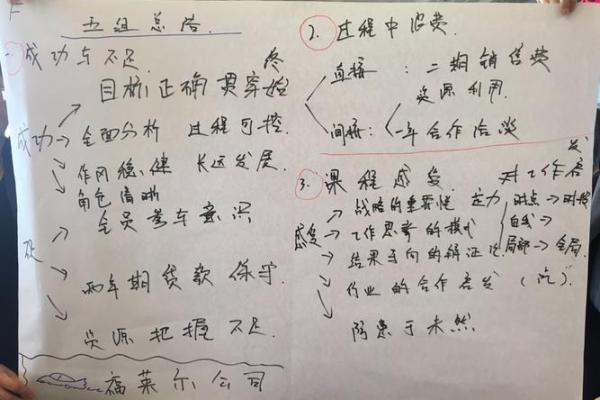 五组总结
一、成功与不足
目标正确贯穿始终
成功→全面分析 过程可控.
作风稳健 长远发展.
角色清晰
全员考车意识
不足
两年期贷款 保守.
资源把握不足.
福莱尔公司
2. 过程中浪费.
直接: 二期销售费
资源利用.
间接: 一年合作洽谈
3. 课程感受.
对工作启发
战略的重要性
感受→工作思考的模式
结果导向的辩证法
作业的合作启发
防患于未然
时点→时段
自我→
局部→全局.